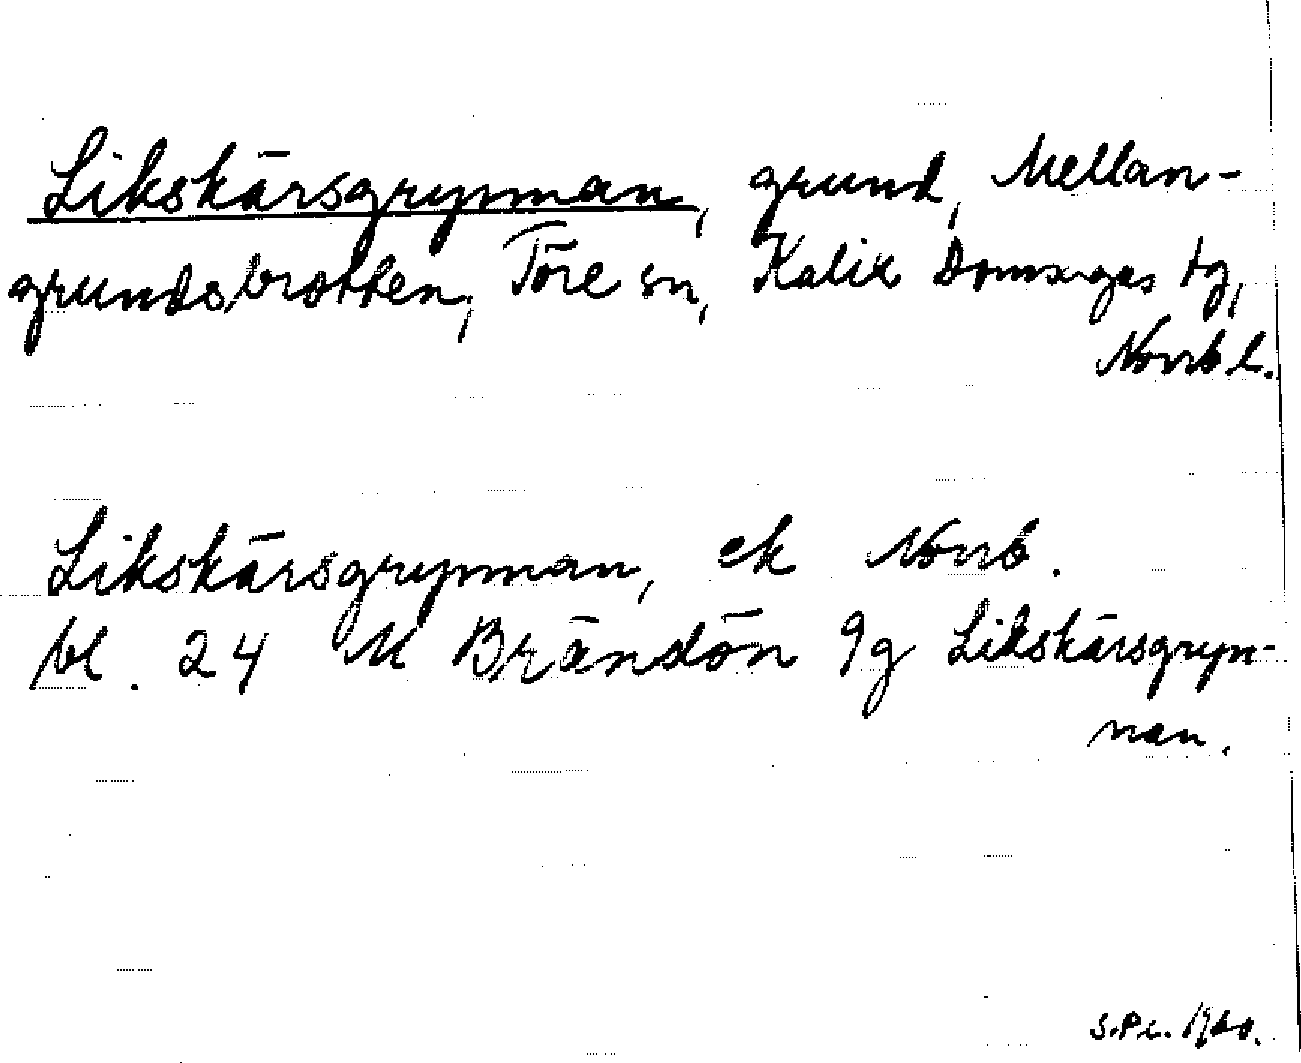 Likskärsgrynnan, grund, Mellan-
grundsbrotten, Töre sn, Kalix Domsagas tg,
Norrb l.
Likskärsgrynnan, ek Norrb.
bl. 24 M Brändön 9g Likskärsgryn-
nan.
S.P.L. 1960.